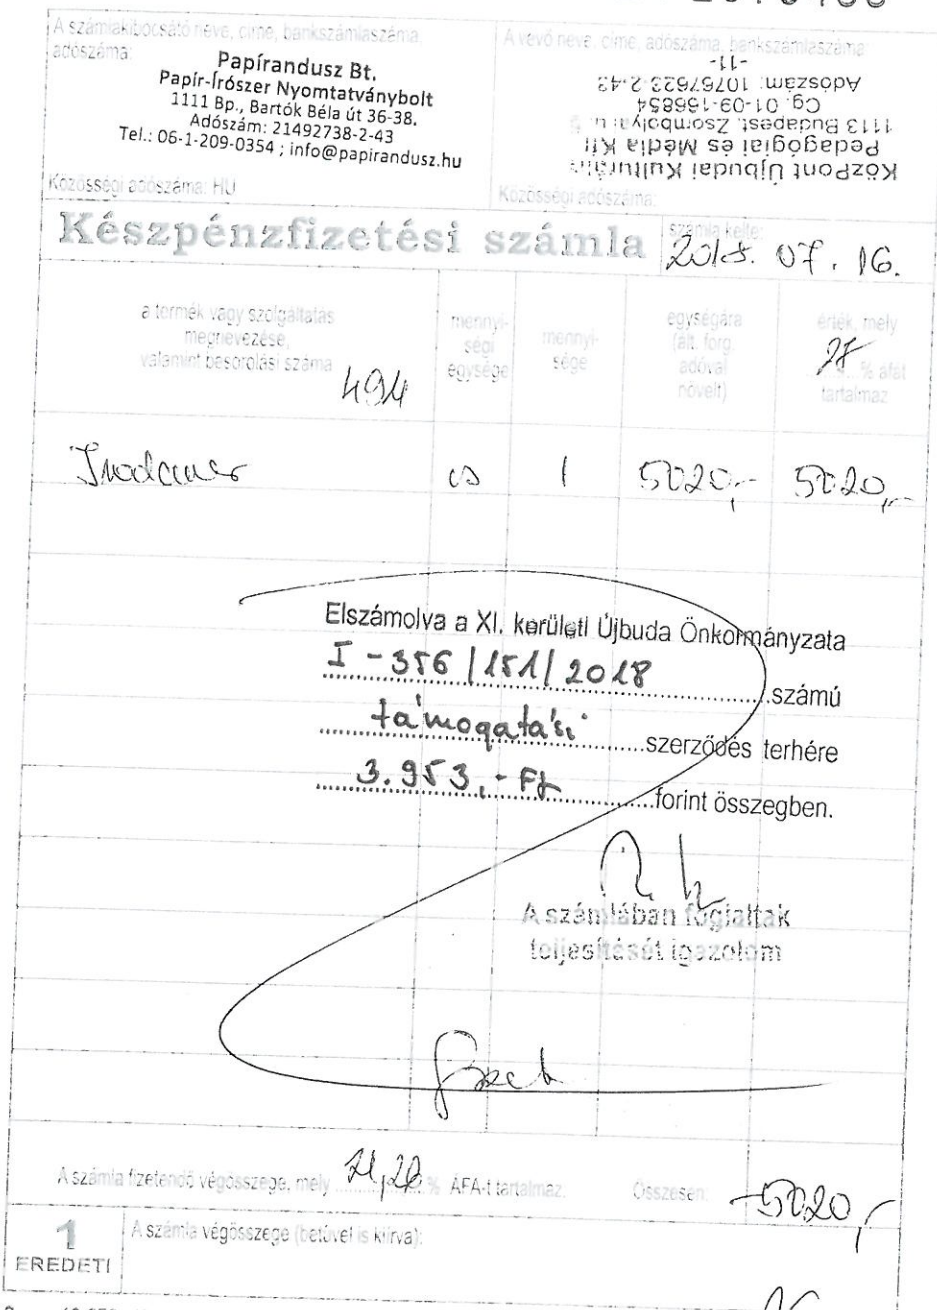 A számlakibocsátó neve, címe, bankszámlaszáma,
adószáma:
Papírandusz Bt.
Papír-Írószer Nyomtatványbolt
1111 Bp., Bartók Béla út 36-38.
Adószám: 21492738-2-43
Tel.: 06-1-209-0354 ; info@papirandusz.hu
Közösségi adószáma: HU
A vevő neve, címe, adószáma, bankszámlaszáma:
KözPont Újbudai Kulturális
Pedagógiai és Média Kft
1113 Budapest, Zsombolyai u.
Cg. 01-09-156854
Adószám: 10757623-2-43
-11-
Közösségi adószáma:
Készpénzfizetési számla
számla kelte:
2018. 07. 16.
a termék vagy szolgáltatás
megnevezése,
valamint besorolási száma
494
mennyi-
ségi
egysége
mennyi-
sége
egységára
(ált. forg.
adóval
növelt)
érték, mely
27 % áfát
tartalmaz
Irodaszer cs 1 5020,- 5020,-
Elszámolva a XI. kerületi Újbuda Önkormányzata
I-356/151/2018 számú
támogatási szerződés terhére
3.953,- Ft forint összegben.
A számlában foglaltak
teljesítését igazolom
A számla fizetendő végösszege, mely 21,26 % ÁFA-t tartalmaz. Összesen: 5020,-
1
EREDETI
A számla végösszege (betűvel is kiírva):